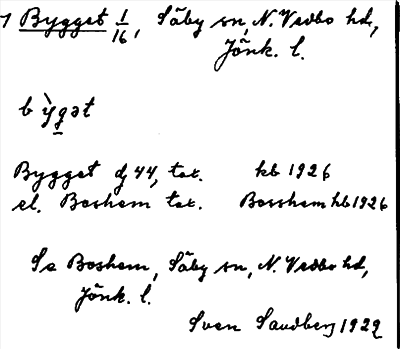 1 Bygget 1/16, Säby sn, N. Vedbo hd,
Jönk. l.
b ỳgət
Bygget dj 44, tax. kb 1926
el. Boshem tax. Bosshem kb 1926
Se Boshem, Säby sn, N. Vedbo hd,
Jönk. l.
Sven Sandberg 1929